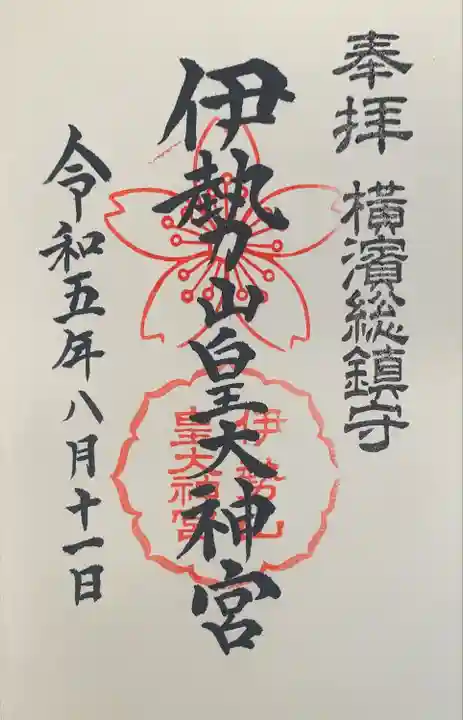 奉拝 横濱総鎮守
伊勢山皇大神宮
伊勢山
皇大神宮
令和五年八月十一日